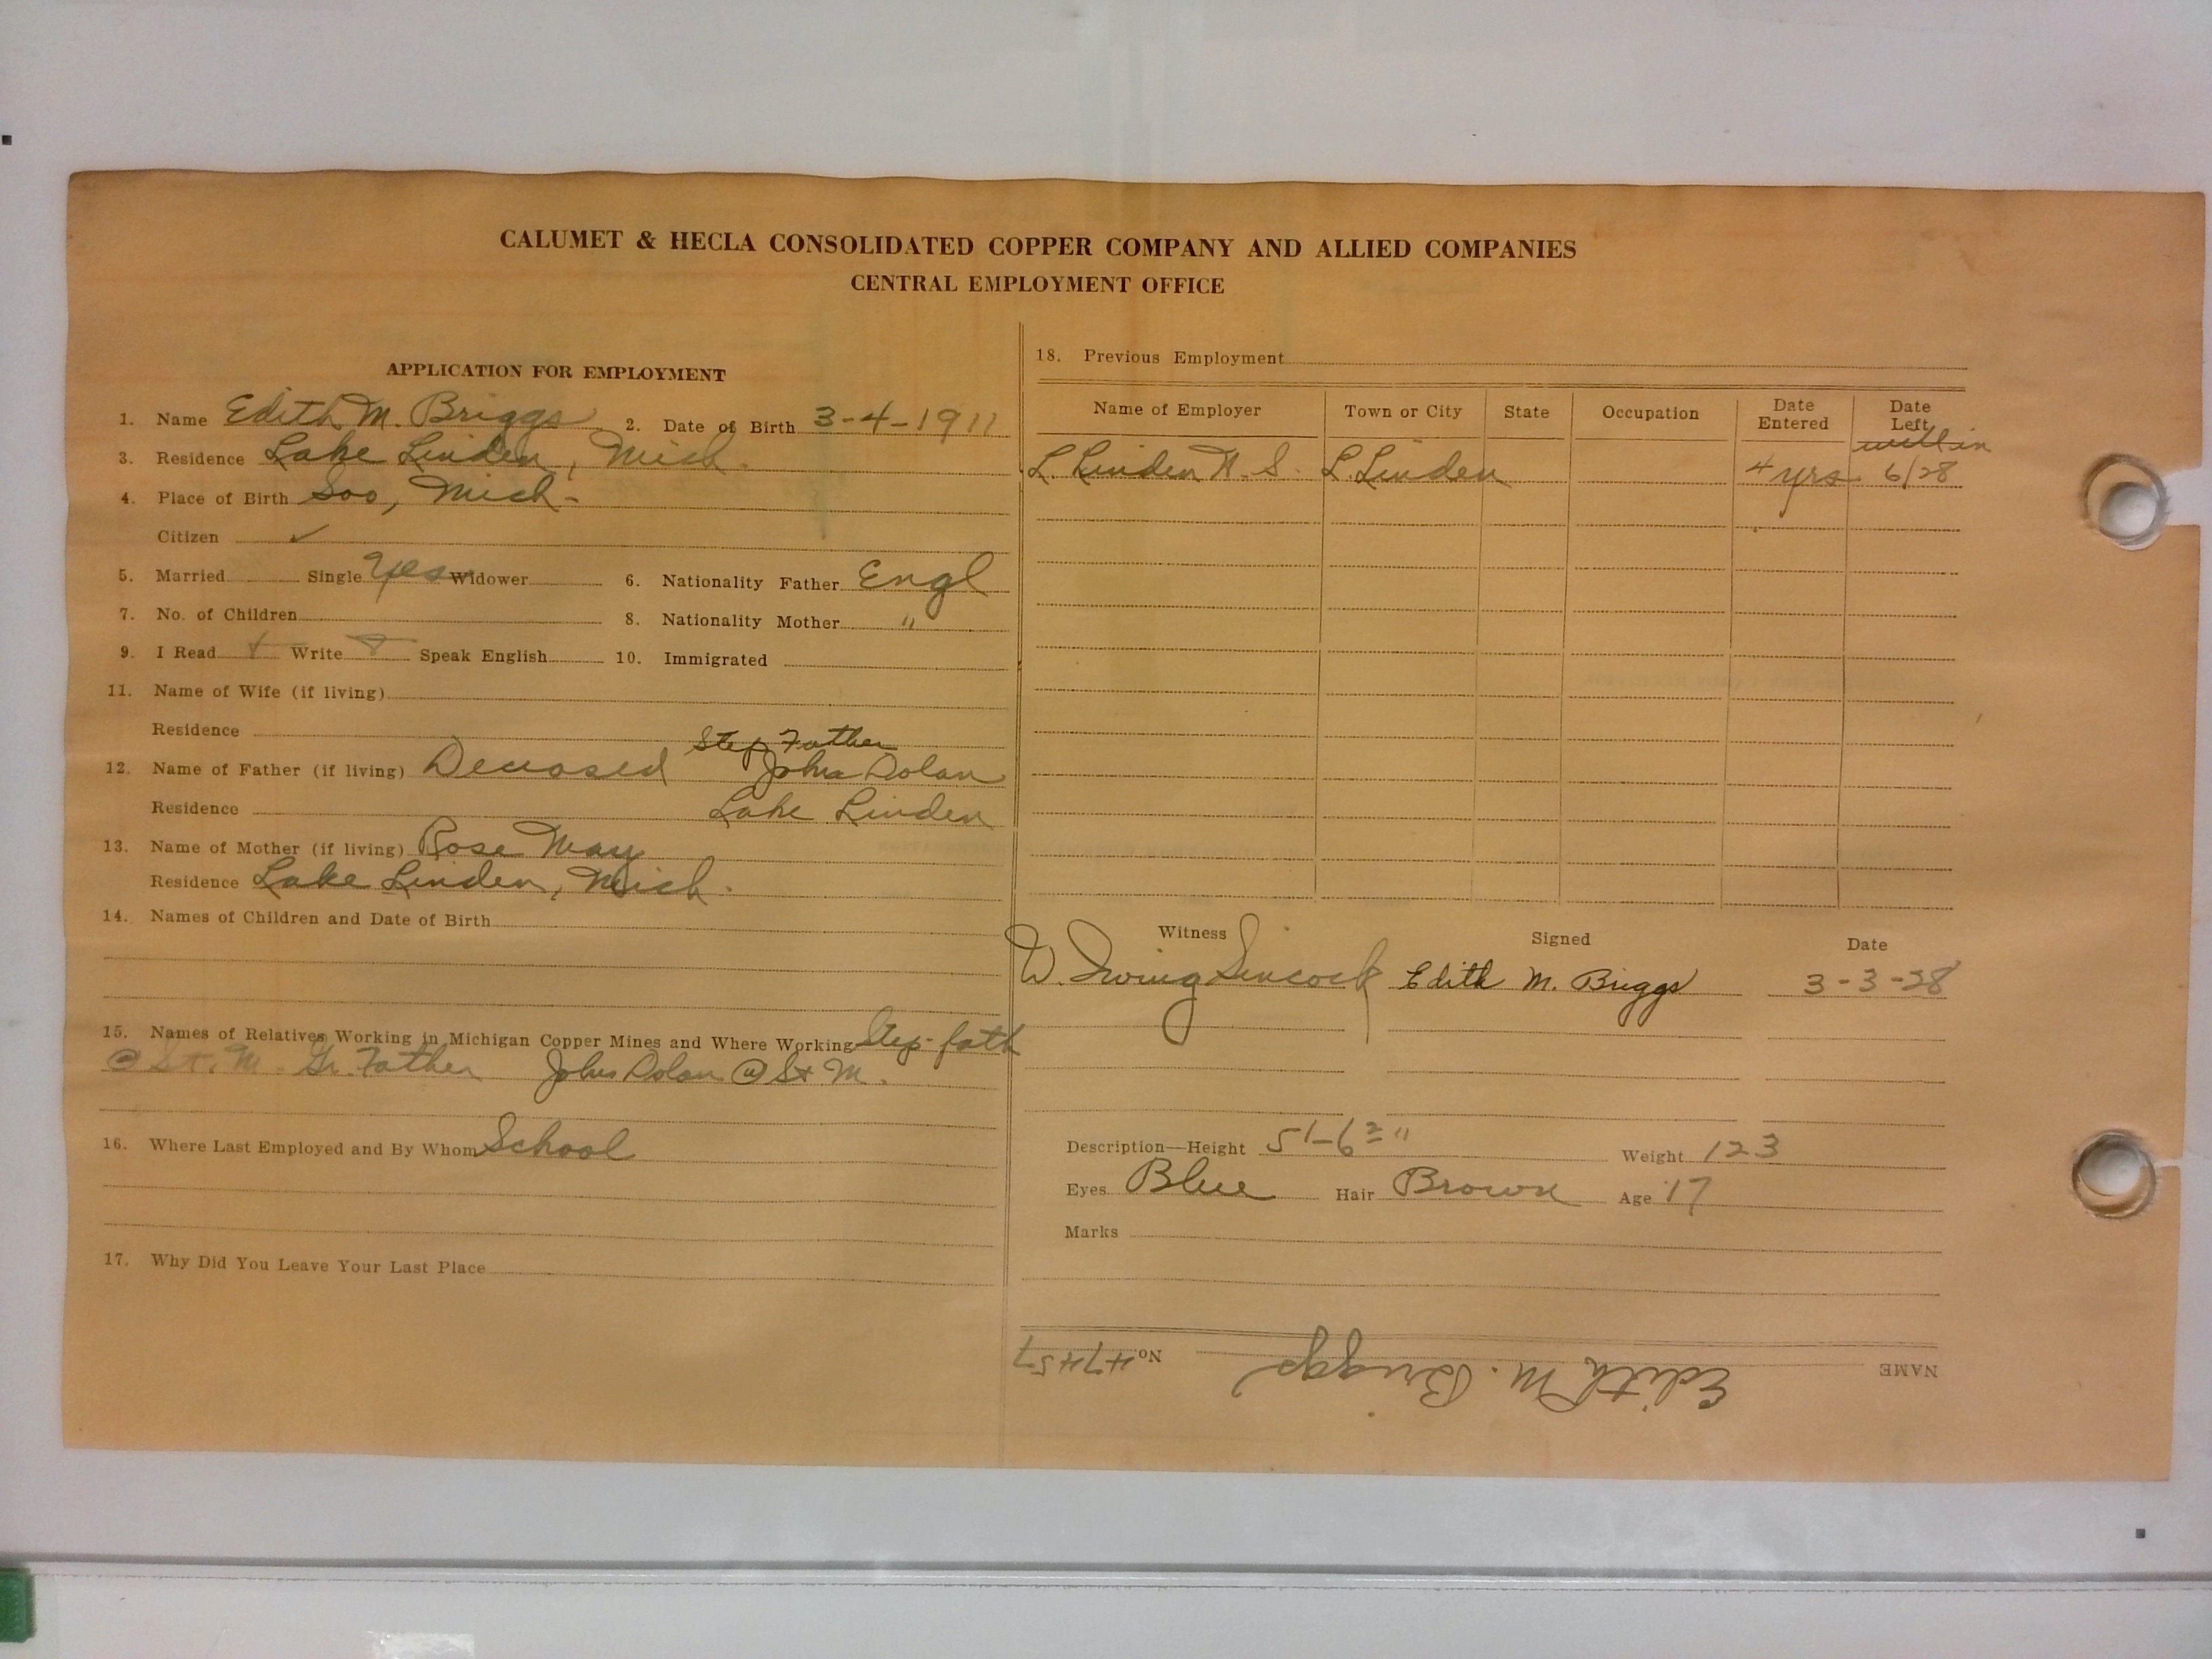 CALUMET & HECLA CONSOLIDATED COPPER COMPANY AND ALLIED COMPANIES
CENTRAL EMPLOYMENT OFFICE
APPLICATION FOR EMPLOYMENT
1. Name Edith M. Briggs 2. Date of Birth 3-4-1911
3. Residence Lake Linden, Mich.
4. Place of Birth Soo, Mich-
Citizen ✓
5. Married Single Yes Widower 6. Nationality Father Engl
7. No. of Children 8. Nationality Mother "
9. I Read Write Speak English 10. Immigrated
11. Name of Wife (if living)
Residence
Step Father
12. Name of Father (if living) Deceased John Dolan
Residence Lake Linden
13. Name of Mother (if living) Rose May
Residence Lake Linden, Mich.
14. Names of Children and Date of Birth
15. Names of Relatives Working in Michigan Copper Mines and Where Working Step-fath
@ St. M. Gr. Father John Dolan @ St M.
16. Where Last Employed and By Whom School
17. Why Did You Leave Your Last Place
18. Previous Employment
Name of Employer Town or City State Occupation Date Entered Date Left
L. Linden H. S. L. Linden 4 yrs 6/28
Witness Signed Date
W. Irving Sincock Edith M. Briggs 3-3-28
Description—Height 5'-6 2/" Weight 123
Eyes Blue Hair Brown Age 17
Marks
NAME Edith M. Briggs No 47457